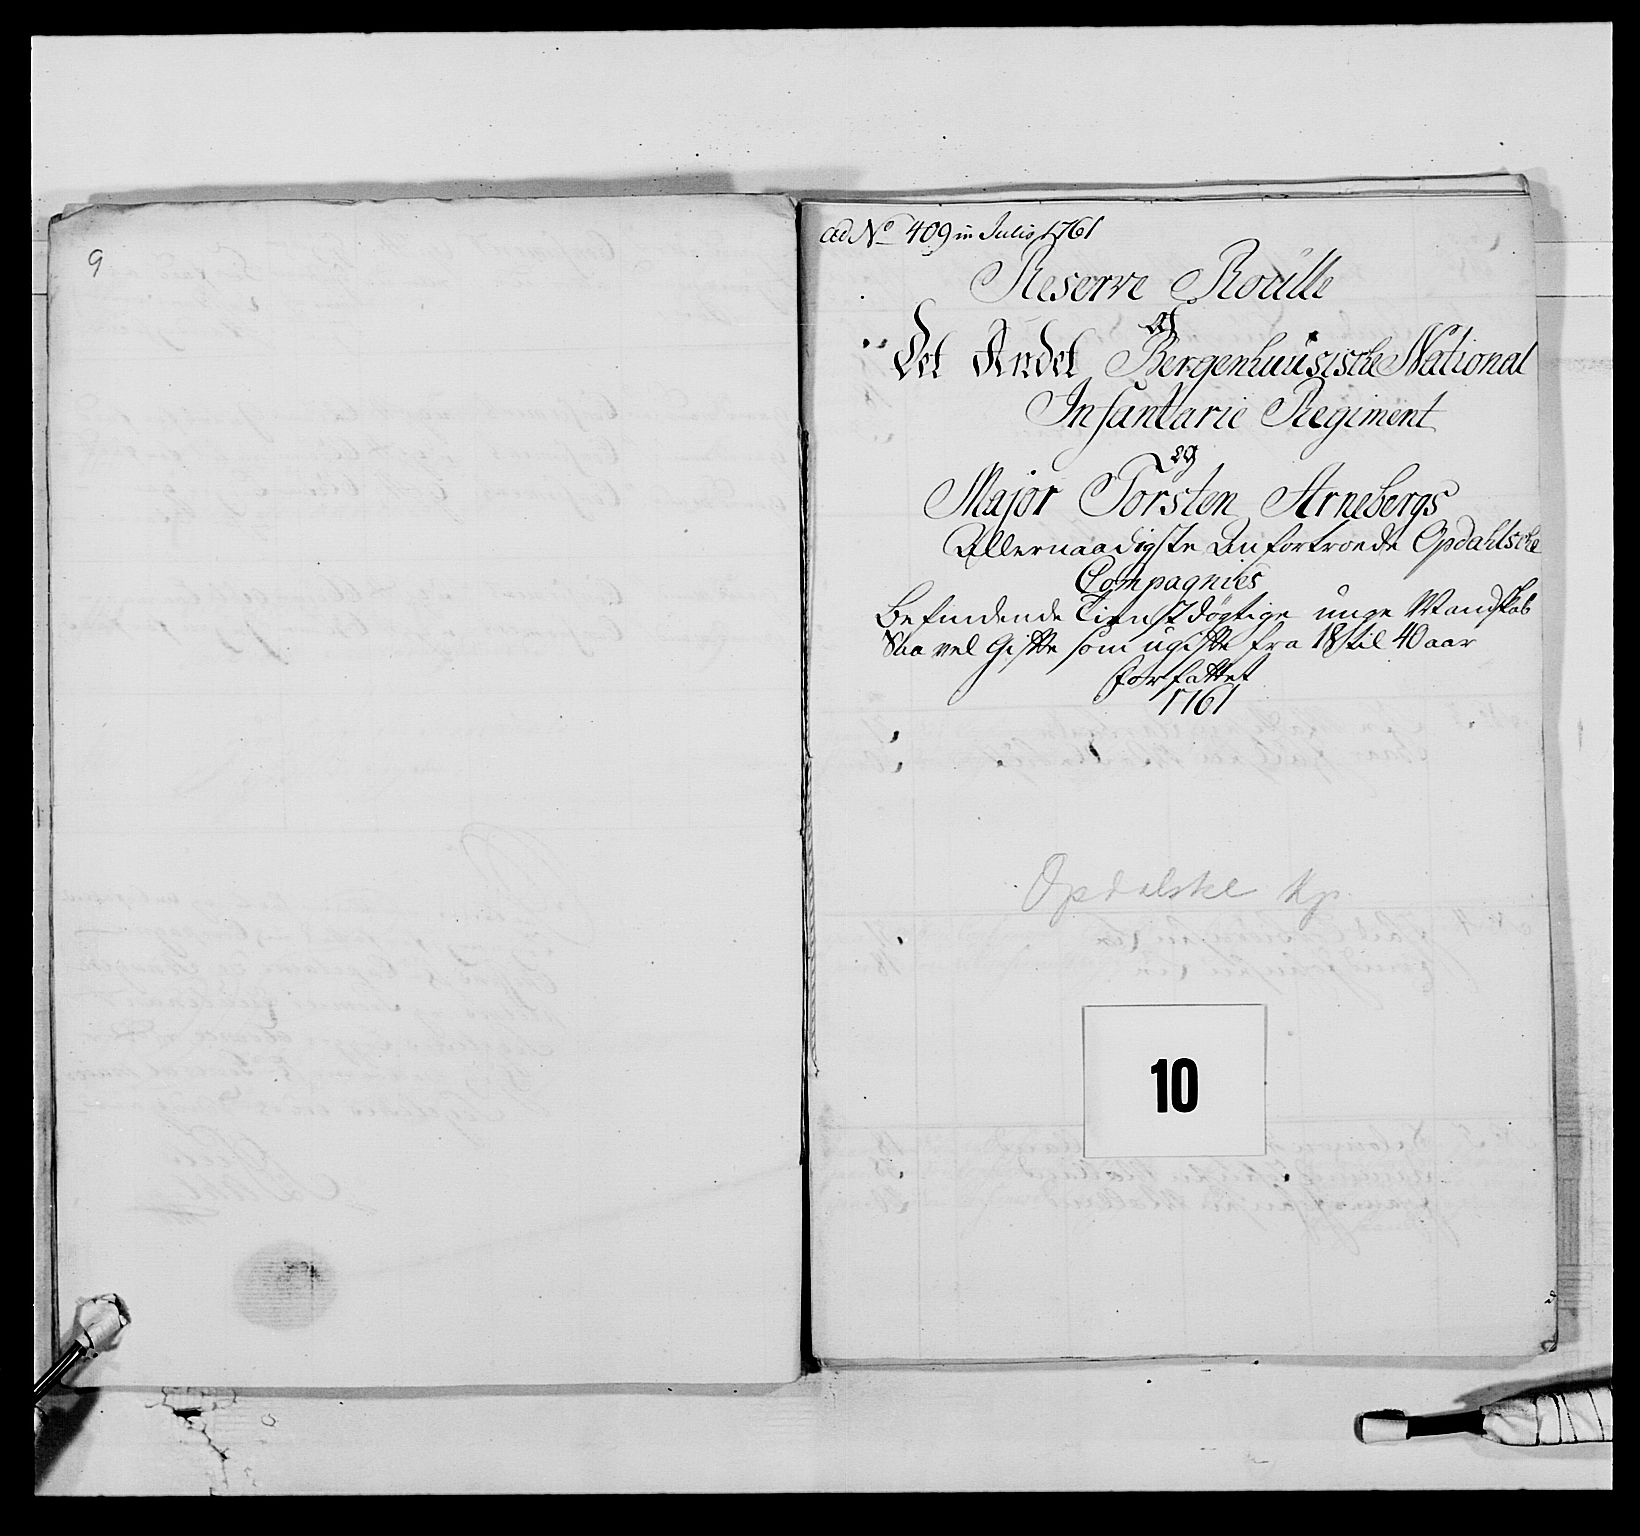 9
ad No 409 in Julio 1761
Reserve Roulle
af
Det Andet Bergenhuusische National
Infantarie Regiment
og
Major Torsten Arnebergs
Allernaadigste Anfortroede Opdahlsche
Compagnies
Befindende Tienstdøgtige unge Mandskab
Saa vel Gifte som ugifte fra 18 til 40 aar
forfattet
1761
Opdalske Kp.
10